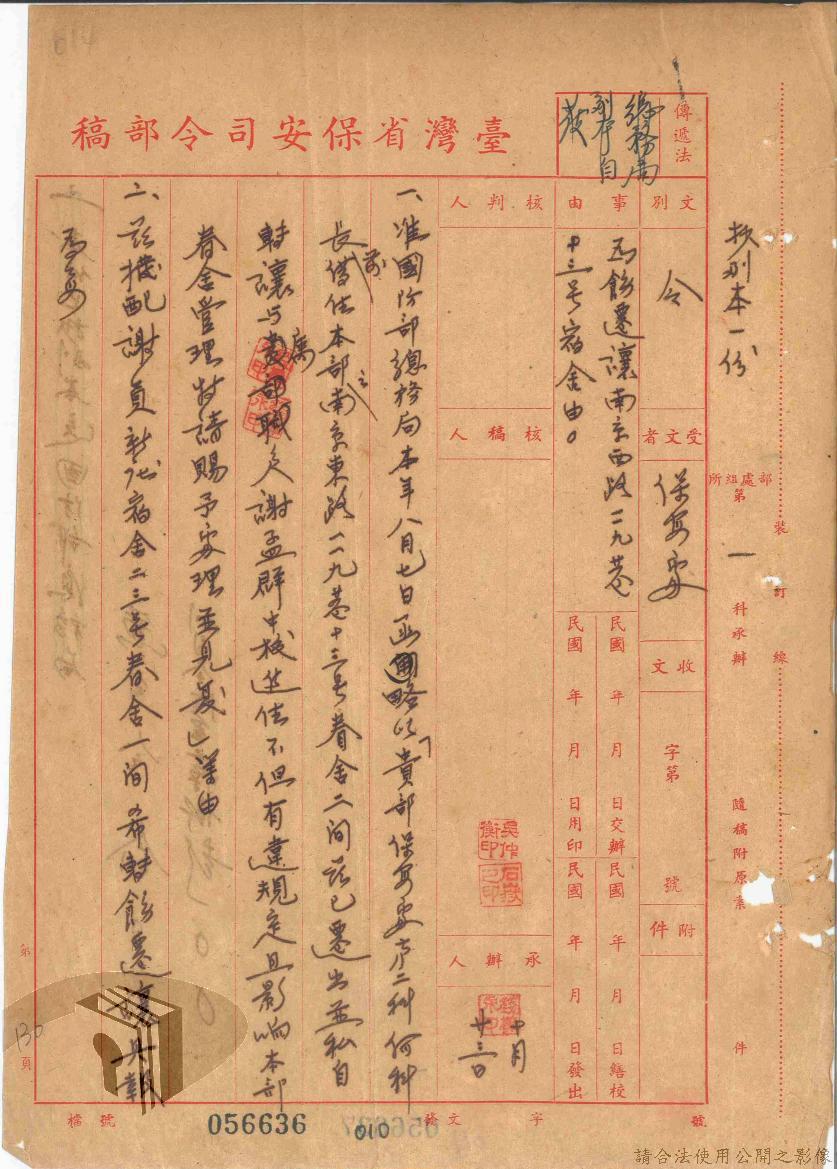 臺灣省保安司令部稿
傳遞法
總務局
副本自
抄副本一份
部處組所
第一科承辦
隨稿附原案
件
裝訂線
文別
令
受文者
保安處
收文
字第
號
附件
事由
為飭遷讓南京西路一一九巷
十三号宿舍由。
民國 年 月 日交辦
民國 年 月 日繕校
民國 年 月 日用印
民國 年 月 日發出
核判人
核稿人
承辦人
十月
廿三日
一、准國防部總務局本年八月七日函略以「貴部保安處第二科何科
長前借住本部南京東路一一九巷十三号眷舍二間茲已遷出並私自
轉讓与屬職員謝孟群中校進住不但有違規定且影响本部
眷舍管理特請賜予處理並見復」等由
二、茲機配謝員新店宿舍二三号眷舍一間希轉飭遷讓具報
為要
檔號
056636
發文
字
號
010
第 頁
130
請合法使用公開之影像